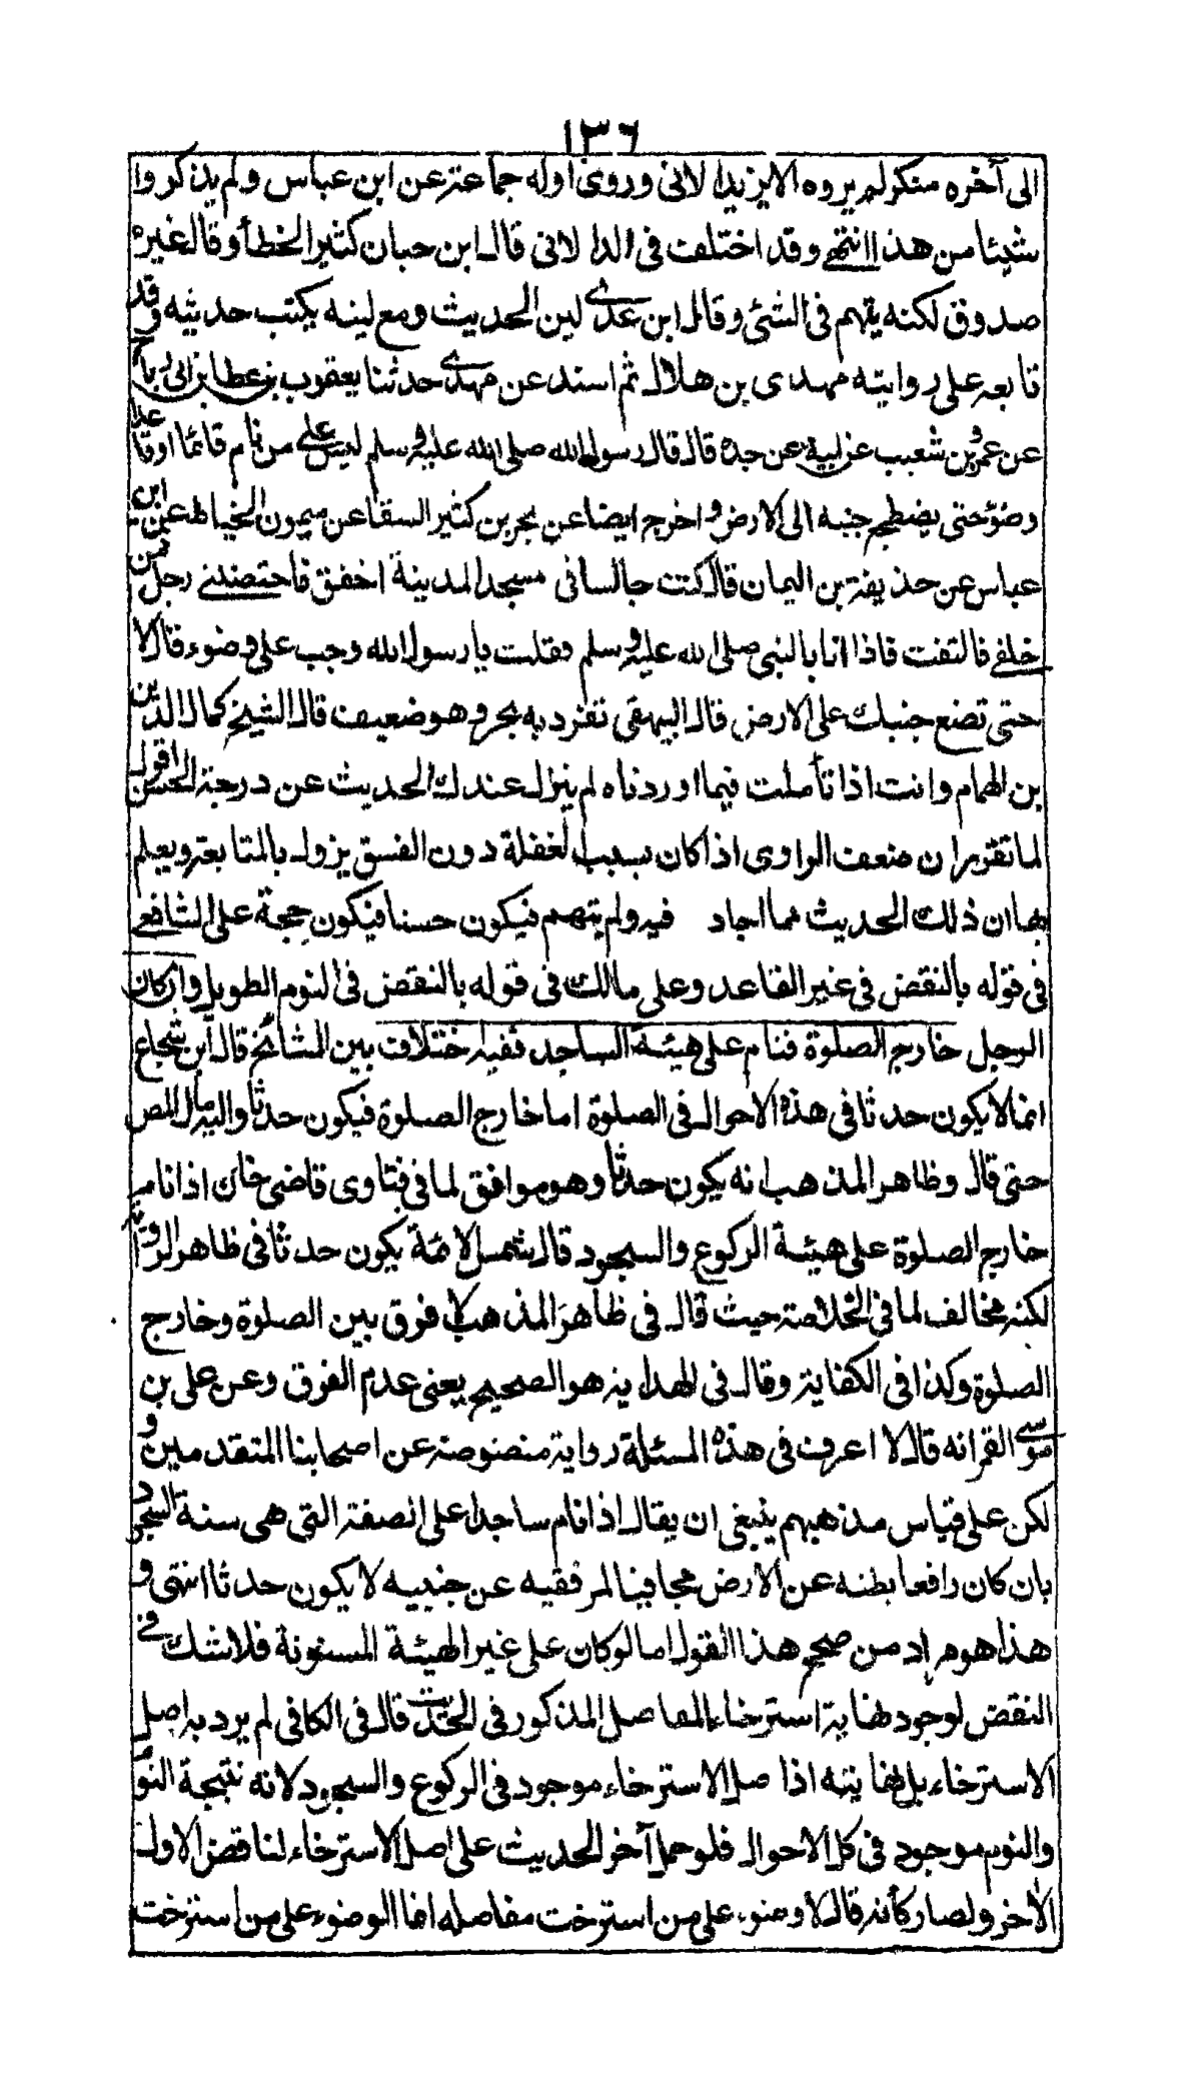 ١٣٦
الى آخره منكر لم يروه الا يزيد الدالانى وروى اوله جماعة عن ابن عباس ولم يذكروا
شيئا من هذا انتهى وقد اختلف فى الدالانى قال ابن حبان كثير الخطأ وقال غيره
صدوق لكنه يهم فى الشئ وقال ابن عدى لين الحديث ومع لينه يكتب حديثه وقد
تابعه على روايته مهدى بن هلال ثم اسند عن مهدى حدثنا يعقوب بن عطا بن ابى رباح
عن عمرو بن شعيب عن ابيه عن جده قال قال رسول الله صلى الله عليه وسلم ليس على من نام قائما او قاعدا
وضؤ حتى يضطجع جنبه الى الارض واخرج ايضا عن بحر بن كثير السقا عن ميمون الخياط عن ابن
عباس عن حذيفة بن اليمان قال كنت جالسا فى مسجد المدينة اخفق فاحتضننى رجل من
خلفى فالتفت فاذا انا بالنبى صلى الله عليه وسلم فقلت يا رسول الله وجب على وضوء قال لا
حتى تضع جنبك على الارض قال البيهقى تفرد به بحر وهو ضعيف قال الشيخ كمال الدين
بن الهمام وانت اذا تأملت فيما اوردناه لم ينزل عندك الحديث عن درجة الحسن اقول
لما تقرر ان ضعف الراوى اذا كان بسبب لغفلة دون الفسق يزول بالمتابعة ويعلم
بها ان ذلك الحديث مما اجاد فيه ولم يتهم فيكون حسنا فيكون حجة على الشافعى
فى قوله بالنقض فى غير القاعد وعلى مالك فى قوله بالنقض فى النوم الطويل وان كان
الرجل خارج الصلوة فنام على هيئة الساجد ففيه اختلاف بين المشائخ قال ابن شجاع
انما لا يكون حدثا فى هذه الاحوال فى الصلوة اما خارج الصلوة فيكون حدثا واليه مال المص
حتى قال وظاهر المذهب انه يكون حدثا وهو موافق لما فى فتاوى قاضى خان اذا نام
خارج الصلوة على هيئة الركوع والسجود قال شمس الائمة يكون حدثا فى ظاهر الرواية
لكنه مخالف لما فى الخلاصة حيث قال فى ظاهر المذهب لا فرق بين الصلوة وخارج
الصلوة وكذا فى الكفاية وقال فى الهداية هو الصحيح يعنى عدم الفرق وعن على بن
موسى القمى انه قال لا اعرف فى هذه المسئلة رواية منصوصة عن اصحابنا المتقدمين و
لكن على قياس مذهبهم ينبغى ان يقال اذا نام ساجدا على الصفة التى هى سنة السجود
بان كان رافعا بطنه عن الارض مجافيا لمرفقيه عن جنبيه لا يكون حدثا انتهى و
هذا هو مراد من صحح هذا القول اما لو كان على غير الهيئة المسنونة فلا شك فى
النقض لوجود نهاية استرخاء المفاصل المذكور فى الحديث قال فى الكافى لم يرد به اصل
الاسترخاء بل نهايته اذ اصل الاسترخاء موجود فى الركوع والسجود لانه نتيجة النوم
والنوم موجود فى كل الاحوال فلو حمل آخر الحديث على اصل الاسترخاء لناقض الاول
الآخر ولصار كأنه قال لا وضوء على من استرخت مفاصله انما الوضوء على من استرخت